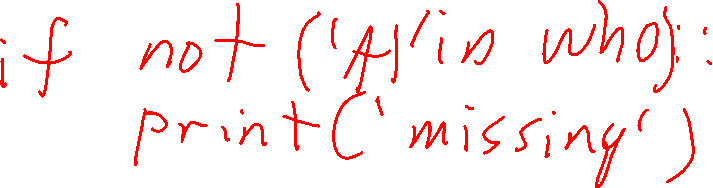 if not ('A' in who):
print('missing')